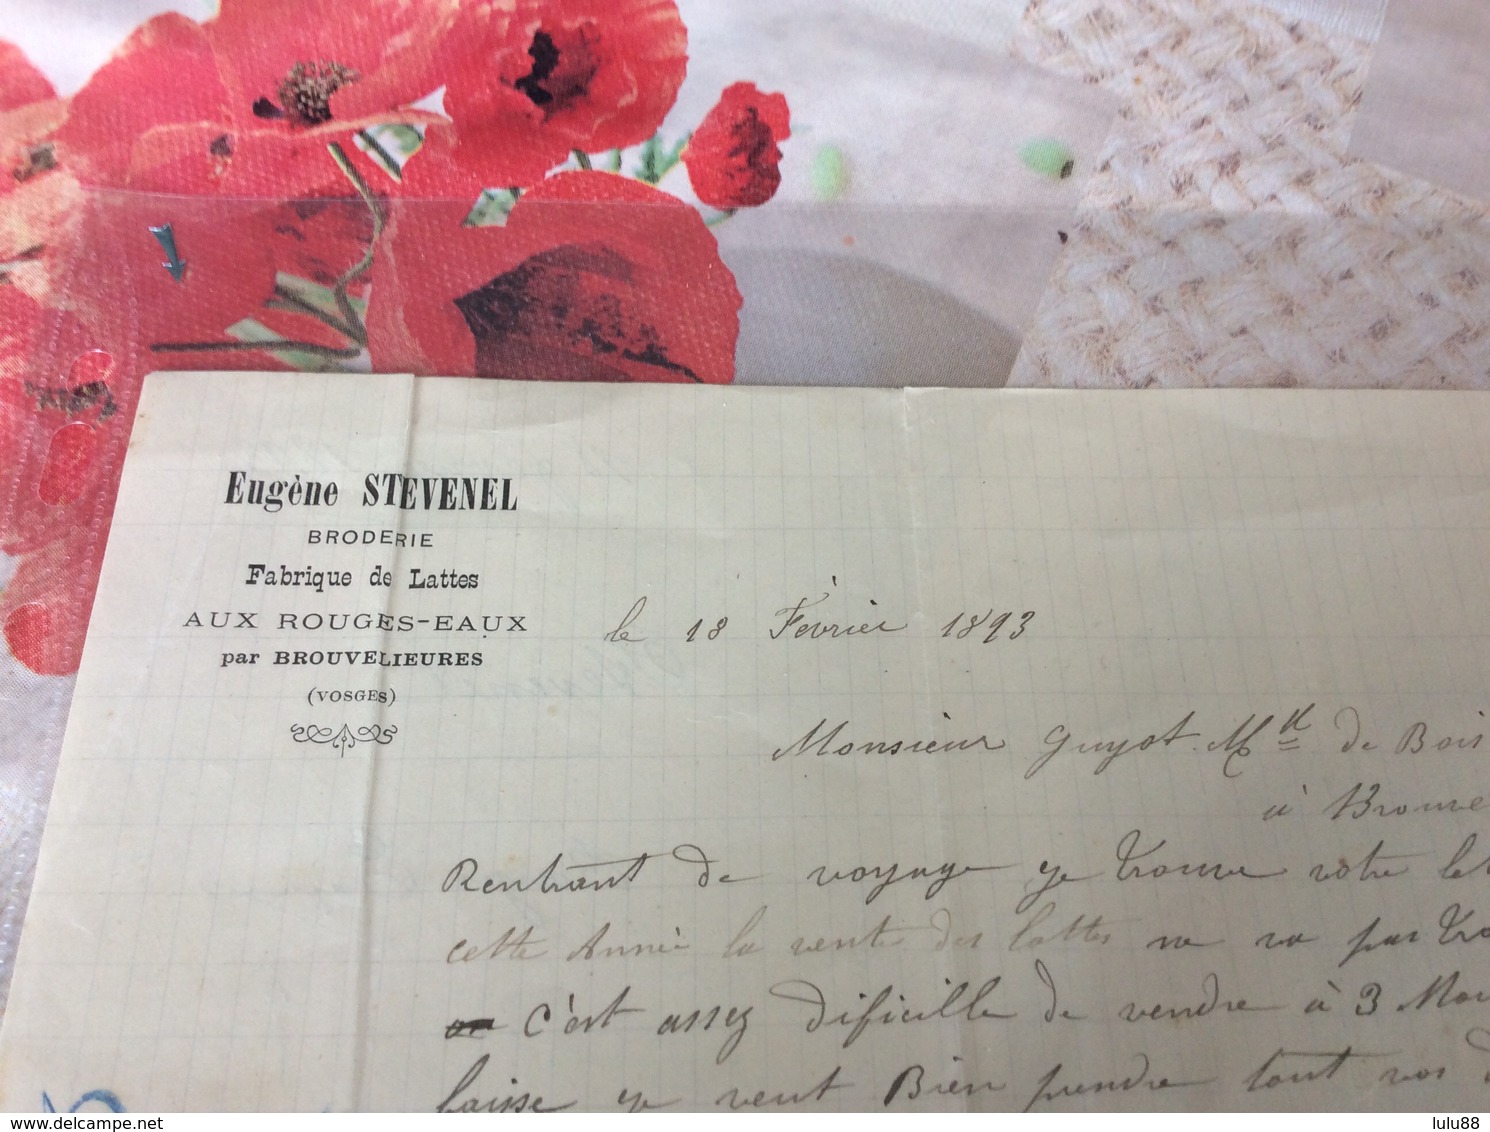 Eugène STEVENEL
BRODERIE
Fabrique de Lattes
AUX ROUGES-EAUX
par BROUVELIEURES
(VOSGES)
le 18 Février 1893
Monsieur Guyot. Md de Bois
à Brouve
Rentrant de voyage je trouve votre let
cette Année la vente des lattes ne va pas tro
c'est assez dificille de vendre à 3 Mou
laisse je veut Bien prendre tout vos
www.delcampe.net
lulu88